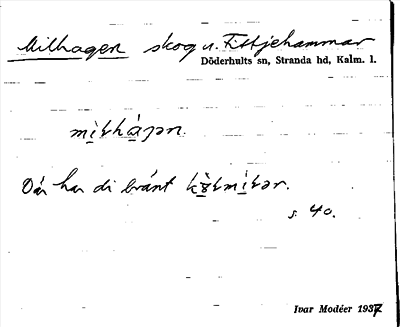 Milhagen skog u. Fittjehammar
Döderhults sn, Stranda hd, Kalm. l.
mìlhàgən.
Dår har di bránt kò̱lmìlər.
s. 40.
Ivar Modéer 1937